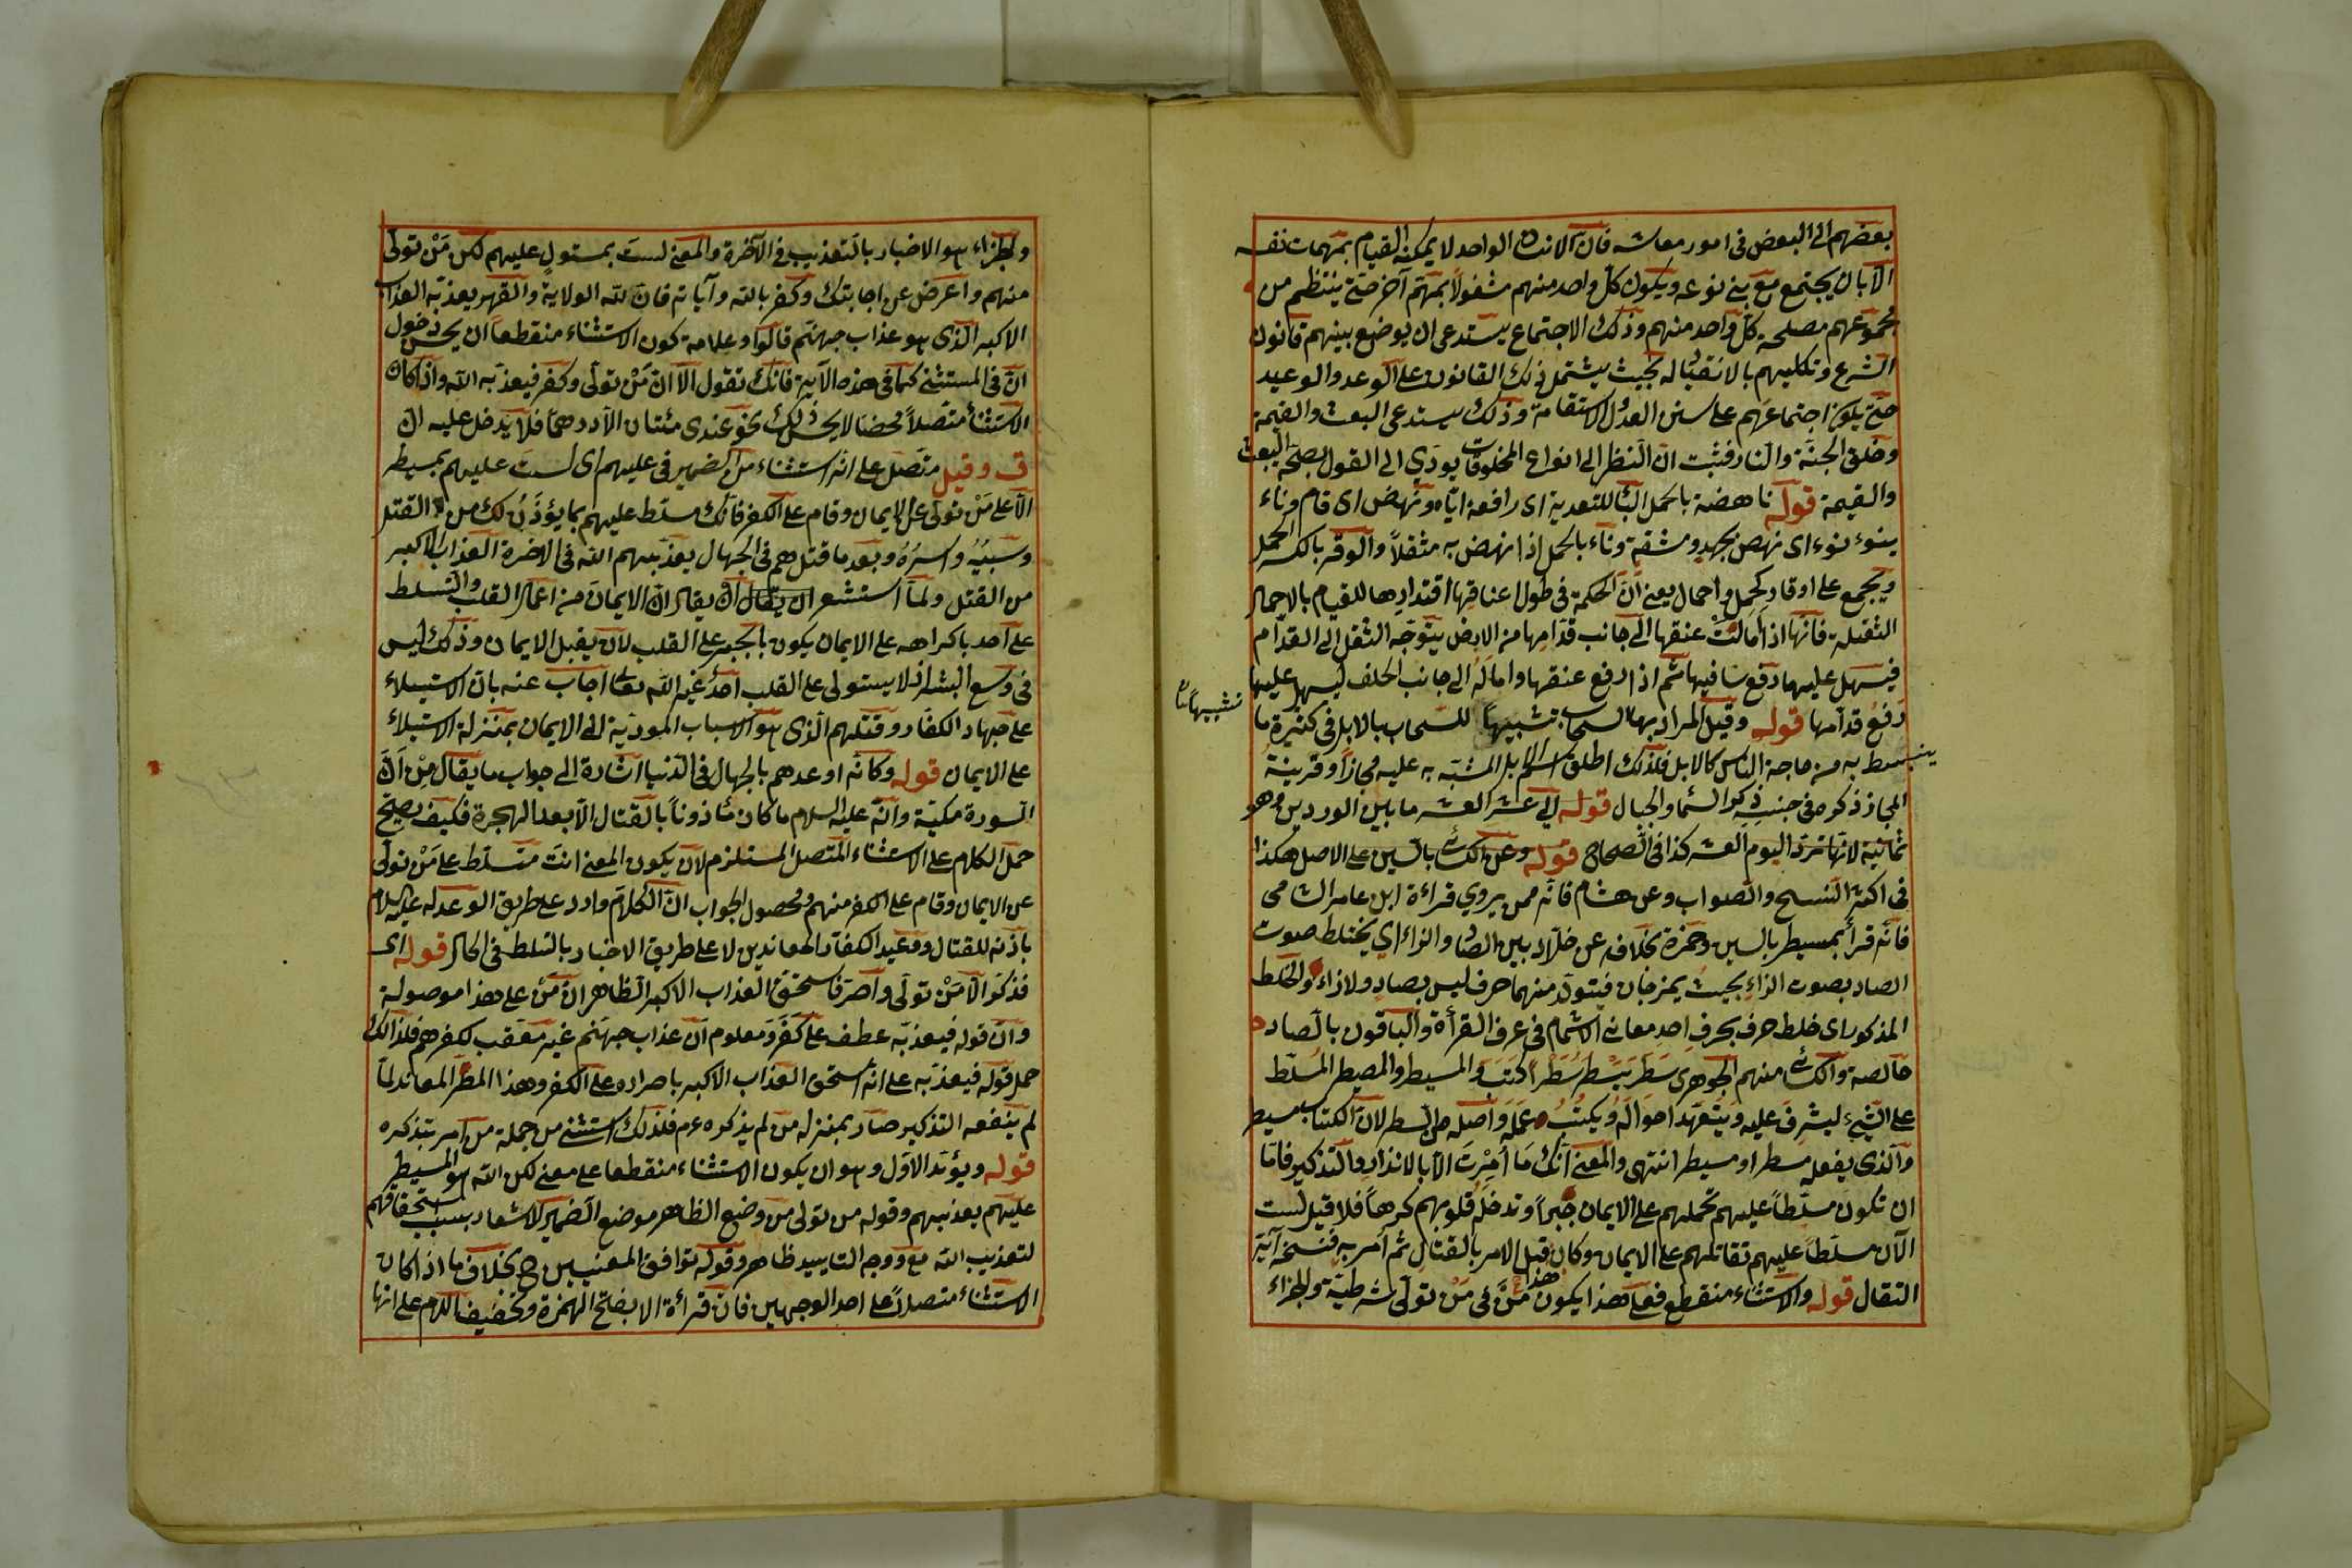 بعضهم الى البعض فى امور معاشه فان الانسان الواحد لا يمكنه القيام بمهمات نفسه
الا بان يجتمع مع بنى نوعه ويكون كل واحد منهم مشغولاً بمهم آخر حتى ينتظم من
مجموعهم مصلحة كل واحد منهم وذلك الاجتماع يستدعى ان يوضع بينهم قانون
الشرع وتكليفهم بالانقياد له بحيث يشتمل ذلك القانون على الوعد والوعيد
حتى يكون اجتماعهم على سنن العدل والاستقامة وذلك يستدعى البعث والقيمة
وخلق الجنة والنار فثبت ان النظر الى انواع المخلوقات يودي الى القول بصحة البعث
والقيمة قوله ناهضة بالحمل الباء للتعدية اى رافعة اياه ونهض اى قام وناء
ينوء نوء اى نهض بجهد ومشقة وناء بالحمل اذا نهض به مثقلاً والوقر بالكسر الحمل
ويجمع على اوقار كحمل واحمال يعنى ان الحكمة فى طول اعناقها اقتدارها للقيام بالاحمال
الثقيلة فانها اذا امالت عنقها الى جانب قدامها من الارض يتوجه الثقل الى القدام
فيسهل عليها رفع ساقيها ثم اذا رفع عنقها واماله الى جانب الخلف ليسهل عليها
رفع قدامها قوله وقيل المراد بها السحاب تشبيهاً للسحاب بالابل فى كثيرة ما
تشبيهاً
ينبسط به من حاجة الناس كالابل فلذلك اطلق اسم الابل المشبه به عليه مجازاً وقرينة
المجاز ذكره فى جنب ذكر السماء والجبال قوله الى عشر العشر ما بين الوردين وهو
ثمانية لانها ترد اليوم العشر كذا فى الصحاح قوله وعن الكسائى بالسين على الاصل هكذا
فى اكثر النسخ والصواب وعن هشام فانه ممن يروي قراءة ابن عامر الشامى
فانه قرأ بمسيطر بالسين وحمزة بخلاف عن خلاد بين الصاد والزاء اي يختلط صوت
الصاد بصوت الزاء بحيث يمزجان فيتولد منهما حرف ليس بصاد ولا زاء والخلط
المذكور اى خلط حرف بحرف احد معانى الاشمام فى عرف القرأة والباقون بالصاد
خالصة والكسائى منهم الجوهرى سطر يسطر سطراً كتب والمسيطر والمصيطر المسلط
على الشيء ليشرف عليه ويتعهد احواله ويكتب عمله واصله من السطر لان الكتاب يسيطر
والذى يفعله مسطر او مسيطر انتهى والمعنى انك ما امرت الا بالانذار والتذكير فاما
ان تكون مسلطاً عليهم تحملهم على الايمان جبراً وتدخله قلوبهم كرهاً فلا قيل لست
الآن مسلطاً عليهم تقاتلهم على الايمان وكان قبل الامر بالقتال ثم امر به فنسخه آية
القتال قوله والاستثناء منقطع فعلى هذا يكون من فى من تولى شرطية والجزاء
هذا
والجزاء هو الاخبار بالتعذيب فى الآخرة والمعنى لست بمستول عليهم لكن من تولى
منهم واعرض عن اجابتك وكفر بالله وآياته فان لله الولاية والقهر يعذبه العذاب
الاكبر الذى هو عذاب جهنم قالوا وعلامة كون الاستثناء منقطعاً ان يحسن دخول
ان فى المستثنى كما فى هذه الآية فانك تقول الا ان من تولى وكفر فيعذبه الله واذا كان
الاستثناء متصلاً محضا لا يحسن ذلك نحو عندى مئتان الا درهما فلا يدخل عليه ان
ق وقيل متصل على انه استثناء من الضمير فى عليهم اى لست عليهم بمسيطر
الا على من تولى عن الايمان وقام على الكفر فانك مسلط عليهم بما يؤذن لك من القتل
وسبيه واسره وبعد ما قتل هم فى الجهال يعذبهم الله فى الاخرة العذاب الاكبر
من القتل ولما استشعر ان يقال ان يقال ان الايمان من اعمال القلب والتسلط
على احد باكراهه على الايمان يكون بالجبر على القلب لان يقبل الايمان وذلك ليس
فى وسع البشر اذ لا يستولى على القلب احد غير الله تعالى اجاب عنه بان الاستيلاء
على جهاد الكفار وقتلهم الذى هو الاسباب المودية الى الايمان بمنزلة الاستيلاء
على الايمان قوله وكانه اوعدهم بالجهال فى الدنيا اشارة الى جواب ما يقال من ان
السورة مكية وانه عليه السلام ما كان مأذوناً بالقتال الا بعد الهجرة فكيف يصح
حمل الكلام على الاستثناء المتصل المستلزم لان يكون المعنى انت متسلط على من تولى
عن الايمان وقام على الكفر منهم ومحصول الجواب ان الكلام وارد على طريق الوعد له عليه السلام
باذنه للقتال ووعيد الكفار المعاندين لا على طريق الاخبار بالتسلط فى الحال قوله اى
فذكر الا من تولى واصر فاستحق العذاب الاكبر الظاهر ان من على هذا موصولة
وان قوله فيعذبه عطف على كفر ومعلوم ان عذاب جهنم غير معقب لكفرهم فلذالك
حمل قوله فيعذبه على انه استحق العذاب الاكبر باصراره على الكفر وهذا المطر المعاند لما
لم ينفعه التذكير صار بمنزلة من لم يذكره عم فلذلك استثنى من جملة من امر بتذكره
قوله ويؤيد الاول وهو ان يكون الاستثناء منقطعا على معنى لكن الله هو المسيطر
عليهم يعذبهم وقوله من تولى من وضع الظاهر موضع الضمير للاشعار بسبب استحقاقهم
لتعذيب الله مع ووجه التاييد ظاهر وقوله توافق المعنيين ح بخلاف ما اذا كان
الاستثناء متصلاً على احد الوجهين فان قرأة الا بفتح الهمزة وتخفيف اللام على انها